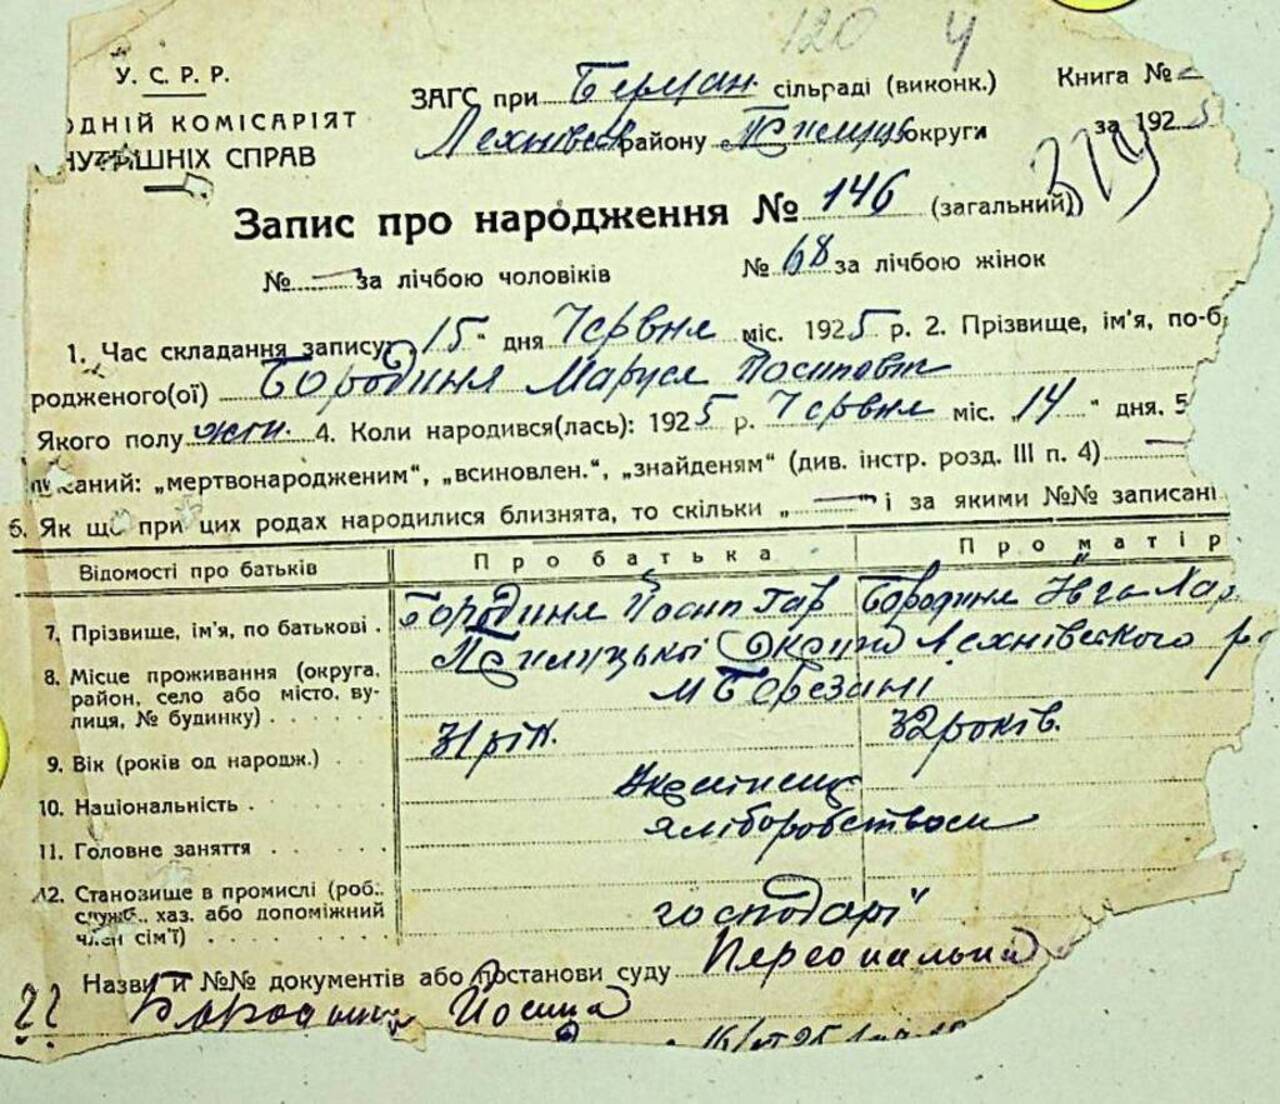 120 4
У. С. Р. Р.
ЗАГС при Берман. сільраді (виконк.) Книга №
ОДНІЙ КОМІСАРІЯТ
Лехнівськ району Прилуцьк округи за 1925
НУТРІШНІХ СПРАВ
Запис про народження № 146 (загальний)
№ — за лічбою чоловіків № 68 за лічбою жінок
1. Час складання запису: „15“ дня Червня міс. 1925 р. 2. Прізвище, ім'я, по-б
родженого(ої) Бородиня Маруся Йосиповн
Якого полу жін. 4. Коли народився(лась): 1925 р. Червня міс. „14“ дня. 5
исаний: „мертвонародженим“, „всиновлен.“, „знайденям“ (див. інстр. розд. III п. 4) —
6. Як що при цих родах народилися близнята, то скільки „—“ і за якими №№ записані
Відомості про батьків Про батька Про матір
7. Прізвище, ім'я, по батькові . Бородиня Йосип Гар Бородиня Ївга Хар
8. Місце проживання (округа, район, село або місто, вулиця, № будинку) . . . . . . Прилуцької Округи Лехнівського р
м Березані
9. Вік (років од народж.) . . 31 рік. 32 років.
10. Національність . . . . . Українець
11. Головне заняття . . . . . хліборобством
12. Становище в промислі (роб., служб., хаз. або допоміжний член сім'ї) . . . . . . . . господарі
Назви й №№ документів або постанови суду Персональна
Бородині Йосипа